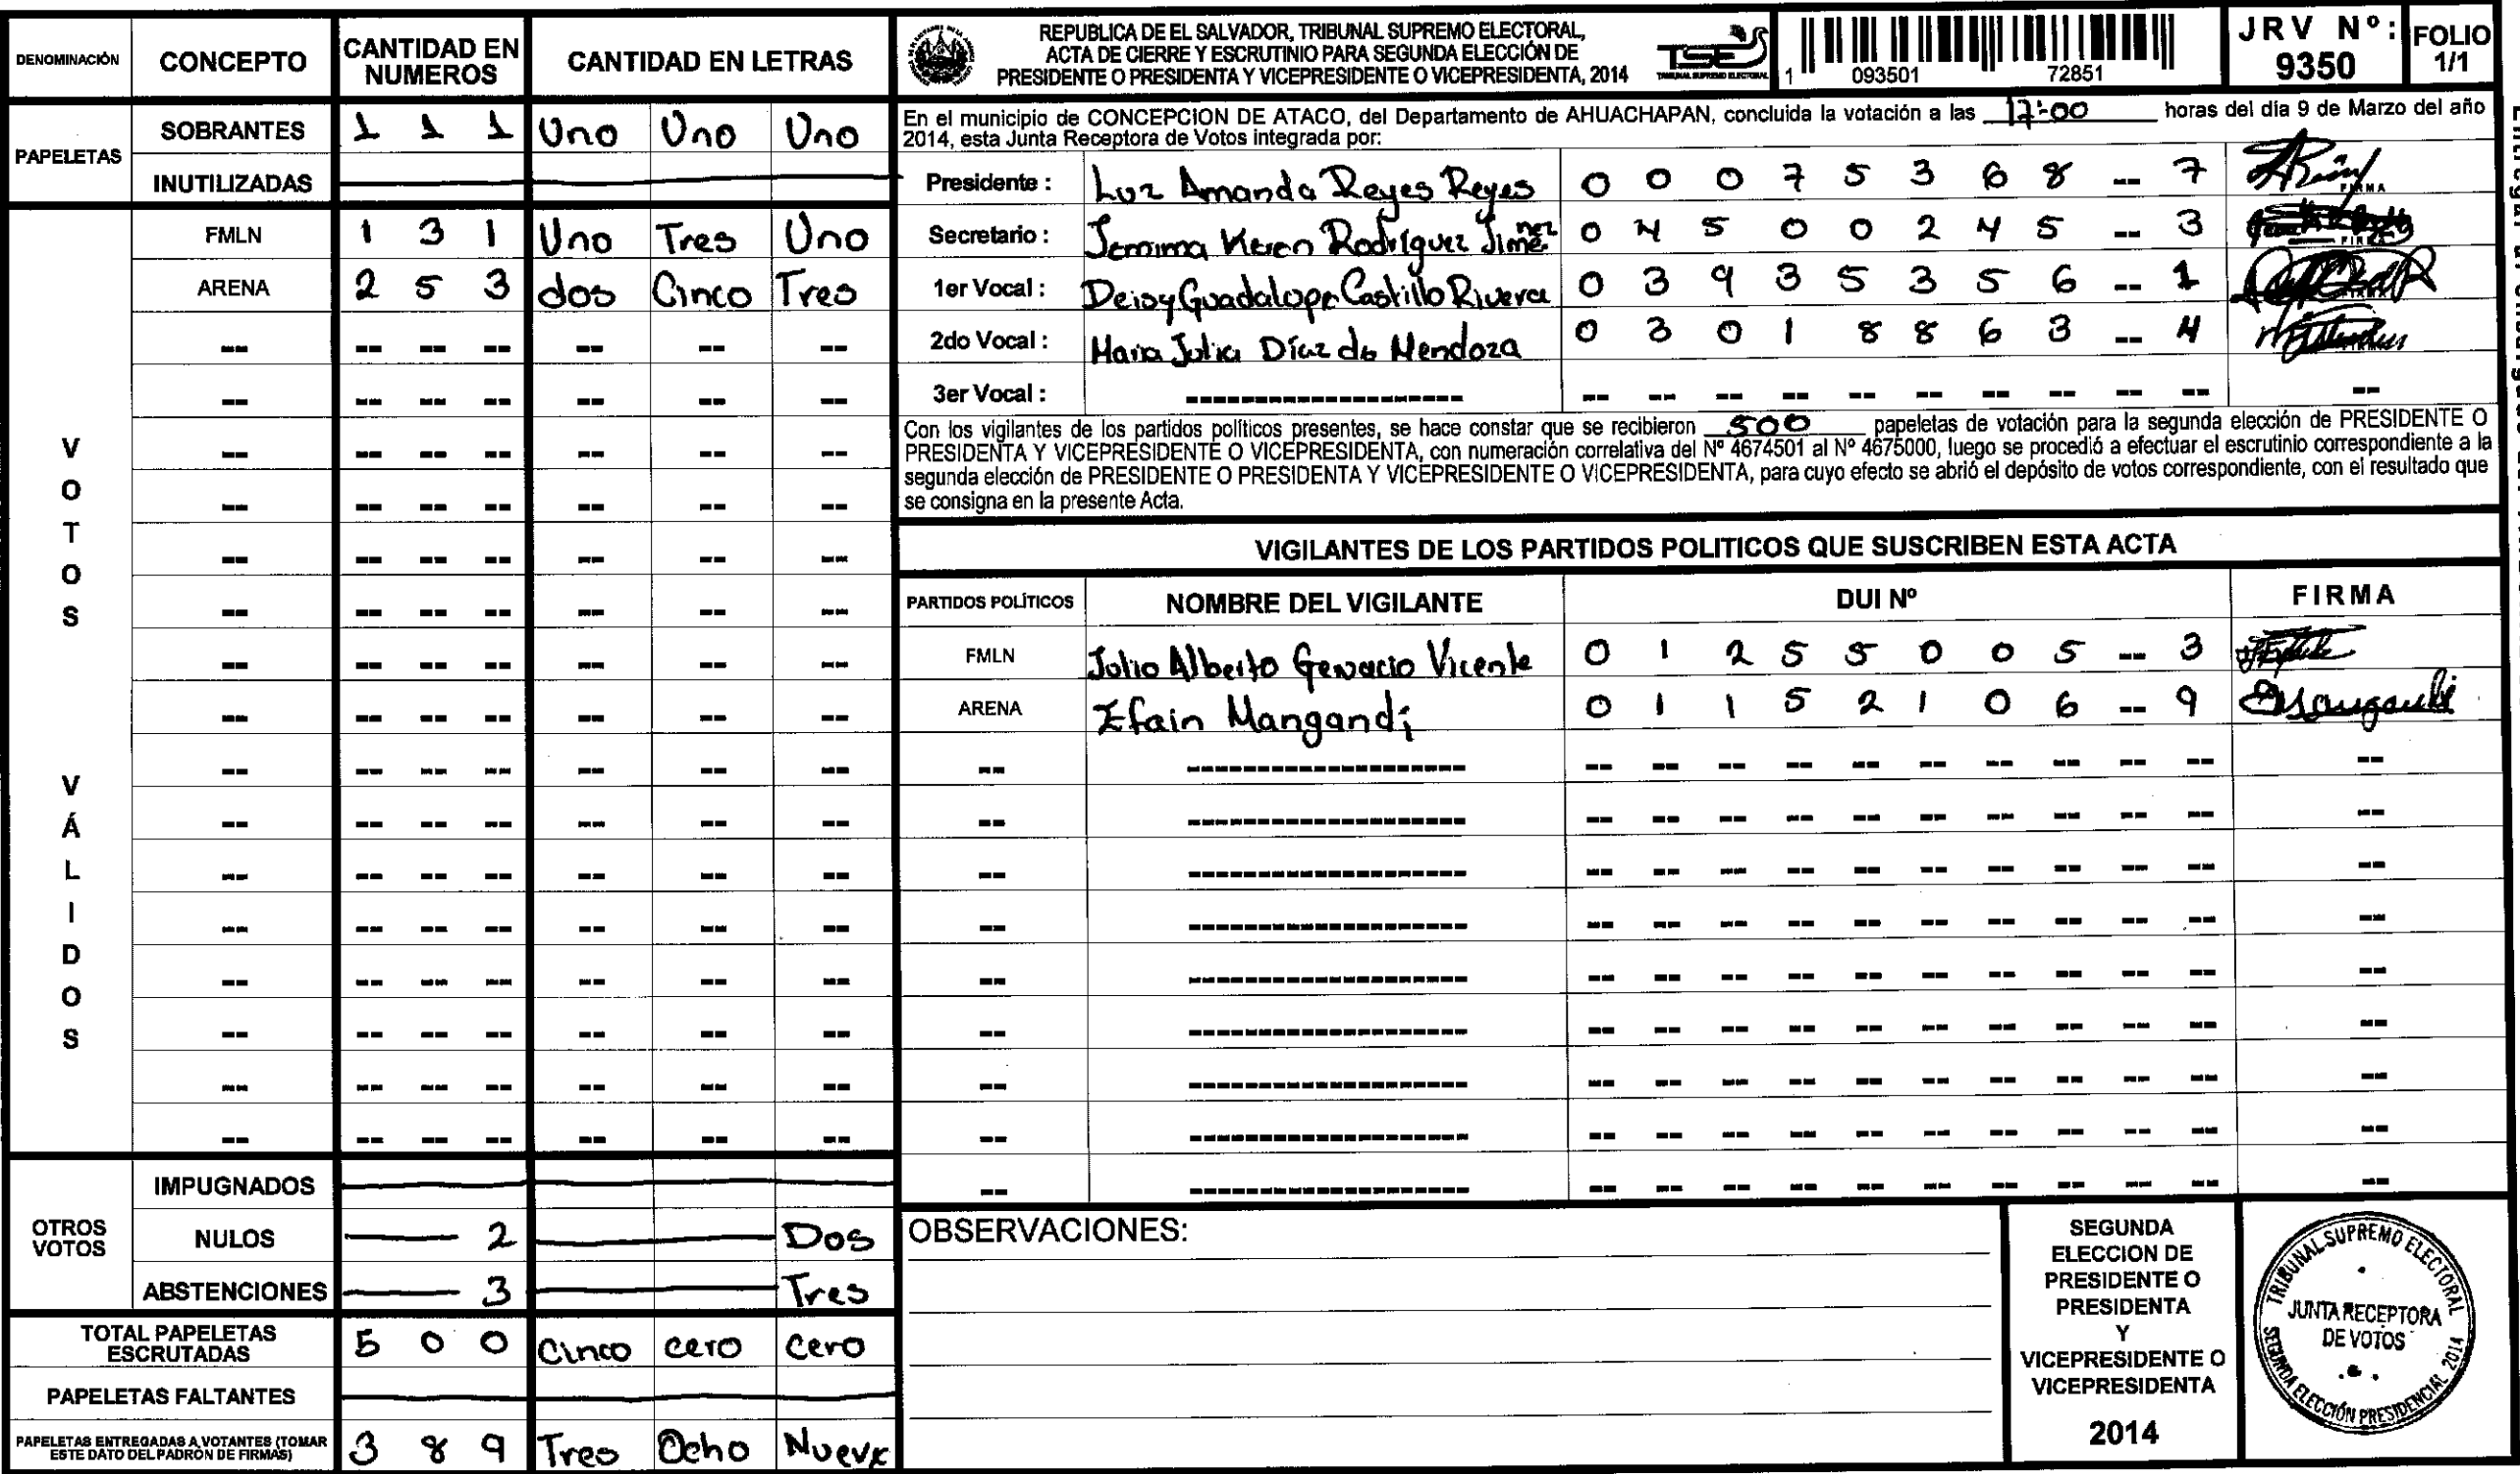 DENOMINACIÓN CONCEPTO CANTIDAD EN NUMEROS CANTIDAD EN LETRAS
PAPELETAS
SOBRANTES 1 1 1 Uno Uno Uno
INUTILIZADAS
VOTOS VÁLIDOS
FMLN 1 3 1 Uno Tres Uno
ARENA 2 5 3 dos Cinco Tres
OTROS VOTOS
IMPUGNADOS
NULOS 2 Dos
ABSTENCIONES 3 Tres
TOTAL PAPELETAS ESCRUTADAS 5 0 0 Cinco cero Cero
PAPELETAS FALTANTES
PAPELETAS ENTREGADAS A VOTANTES (TOMAR
ESTE DATO DEL PADRÓN DE FIRMAS) 3 8 9 Tres Ocho Nueve
REPUBLICA DE EL SALVADOR, TRIBUNAL SUPREMO ELECTORAL,
ACTA DE CIERRE Y ESCRUTINIO PARA SEGUNDA ELECCIÓN DE
PRESIDENTE O PRESIDENTA Y VICEPRESIDENTE O VICEPRESIDENTA, 2014
TSE
TRIBUNAL SUPREMO ELECTORAL
1 093501 72851
JRV Nº: 9350
FOLIO 1/1
En el municipio de CONCEPCION DE ATACO, del Departamento de AHUACHAPAN, concluida la votación a las 17:00 horas del día 9 de Marzo del año
2014, esta Junta Receptora de Votos integrada por:
Presidente : Luz Amanda Reyes Reyes 0 0 0 7 5 3 6 8 -- 7 FIRMA
Secretario : Jemima Keren Rodríguez Jiménez 0 4 5 0 0 2 4 5 -- 3
1er Vocal : Deisy Guadalupe Castillo Rivera 0 3 9 3 5 3 5 6 -- 1
2do Vocal : Maria Julia Díaz de Mendoza 0 3 0 1 8 8 6 3 -- 4
3er Vocal :
Con los vigilantes de los partidos políticos presentes, se hace constar que se recibieron 500 papeletas de votación para la segunda elección de PRESIDENTE O
PRESIDENTA Y VICEPRESIDENTE O VICEPRESIDENTA, con numeración correlativa del Nº 4674501 al Nº 4675000, luego se procedió a efectuar el escrutinio correspondiente a la
segunda elección de PRESIDENTE O PRESIDENTA Y VICEPRESIDENTE O VICEPRESIDENTA, para cuyo efecto se abrió el depósito de votos correspondiente, con el resultado que
se consigna en la presente Acta.
VIGILANTES DE LOS PARTIDOS POLITICOS QUE SUSCRIBEN ESTA ACTA
PARTIDOS POLÍTICOS NOMBRE DEL VIGILANTE DUI Nº FIRMA
FMLN Julio Alberto Gervacio Vicente 0 1 2 5 5 0 0 5 -- 3
ARENA Efain Mangandí 0 1 1 5 2 1 0 6 -- 9
OBSERVACIONES:
SEGUNDA
ELECCION DE
PRESIDENTE O
PRESIDENTA
Y
VICEPRESIDENTE O
VICEPRESIDENTA
2014
TRIBUNAL SUPREMO ELECTORAL
JUNTA RECEPTORA
DE VOTOS
SEGUNDA ELECCIÓN PRESIDENCIAL 2014